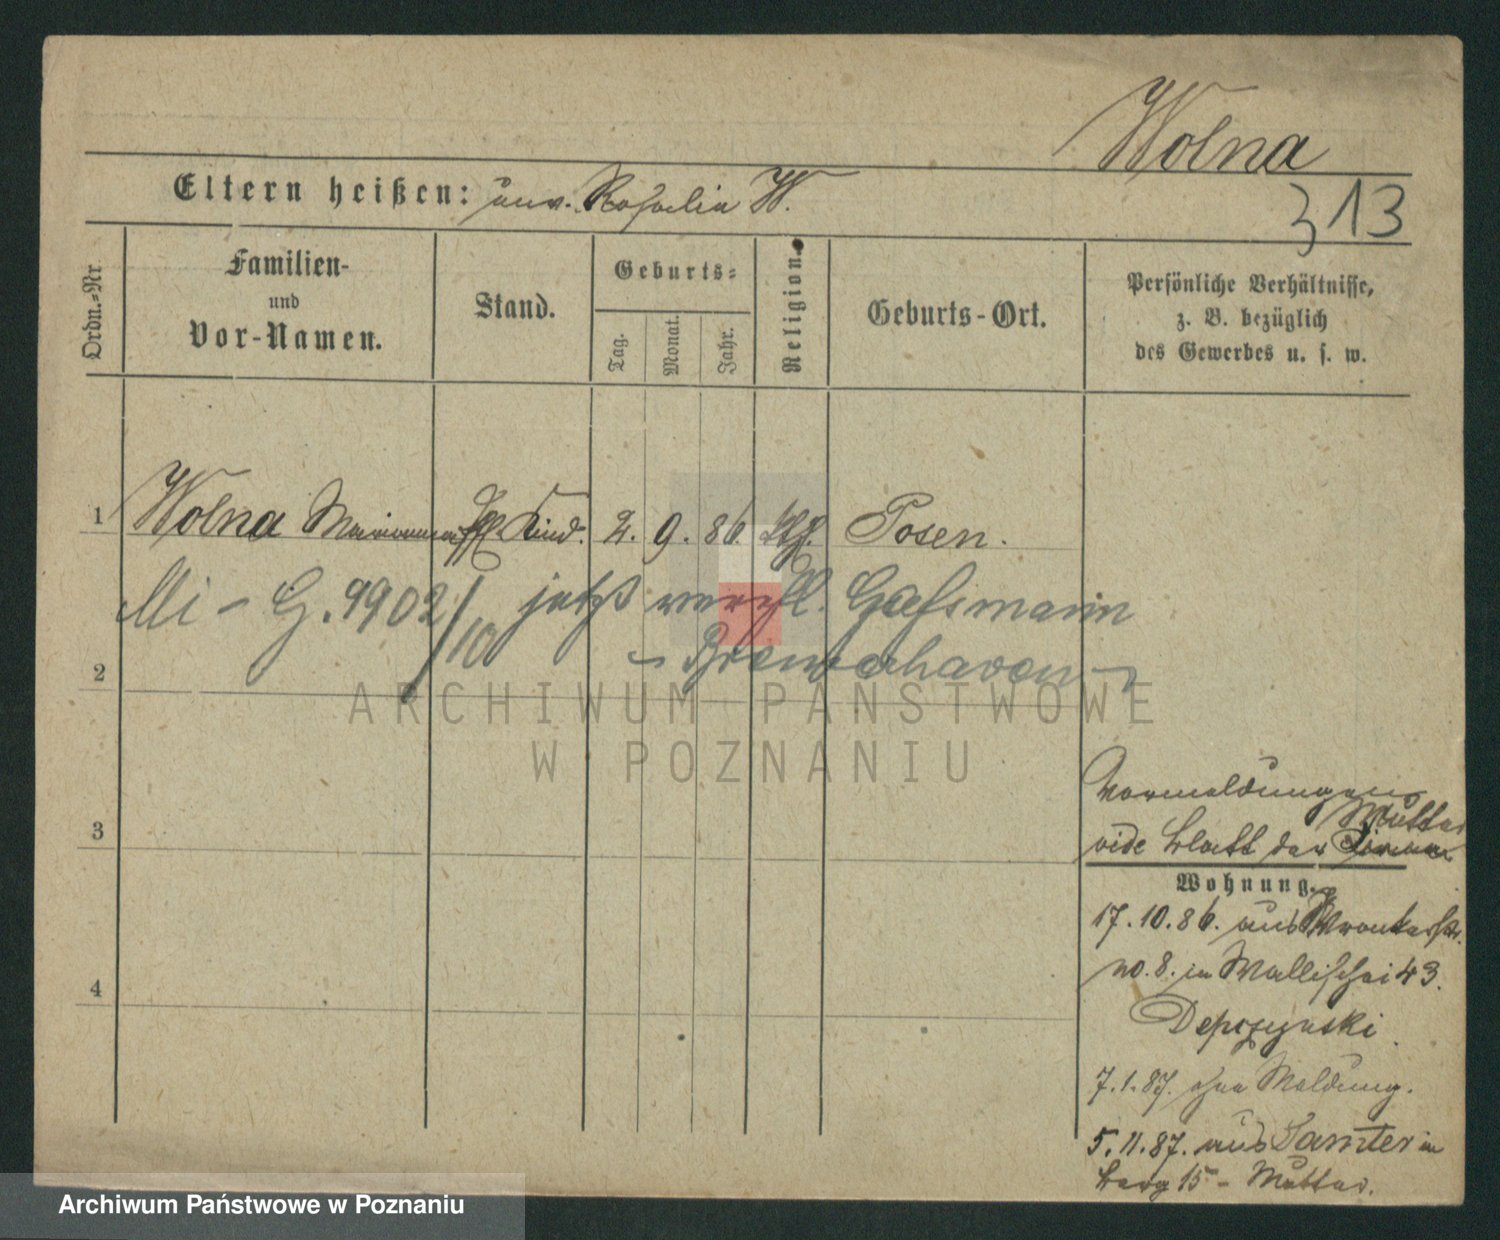 Wolna
Eltern heißen: unv. Rosalia W.
313
Ordn.-Nr.
Familien-
und
Vor-Namen.
Stand.
Geburts-
Tag.
Monat.
Jahr.
Religion.
Geburts-Ort.
Persönliche Verhältnisse,
z. B. bezüglich
des Gewerbes u. s. w.
1 Wolna Marianna Kind. 2. 9. 86. kth. Posen.
Mi - G. 9902/10 jetzt verehl. Gassmann
- Bremerhaven -
2
3
4
Vormeldungen
vide Blatt der Mutter
Wohnung.
17.10.86. aus Wronkerstr.
no. 8. in Wallischei 43.
Depczynski
7.1.87. ohne Meldung.
5.11.87. aus Samter in
Berg 15 - Mutter.
ARCHIWUM PAŃSTWOWE
W POZNANIU
Archiwum Państwowe w Poznaniu